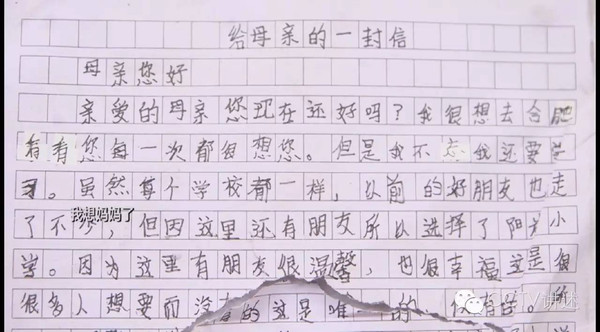 给母亲的一封信
母亲您好
亲爱的母亲您现在还好吗？我很想去合肥
看看您每一次都很想您。但是我不忘我还要学
习。虽然每个学校都一样，以前的好朋友也走
我想妈妈了
了不少，但因这里还有朋友所以选择了阳光小
学。因为这里有朋友很温馨，也很幸福这是很
很多人想要而没有的这是唯一的